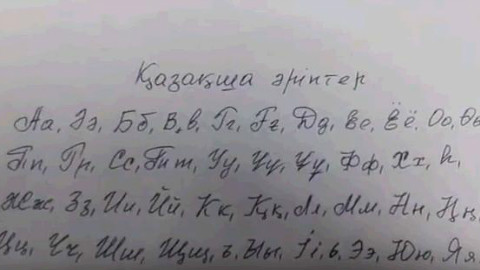 Қазақша әріптер
Аа, Әә, Бб, Вв, Гг, Ғғ, Дд, Ее, Ёё, Оо, Өө
Пп, Рр, Сс, Тт, Уу, Ұұ, Үү, Фф, Хх, һ,
Жж, Зз, Ии, Йй, Кк, Ққ, Лл, Мм, Нн, Ңң,
Цц, Чч, Шш, Щщ, ъ, Ыы, Іі, ь, Ээ, Юю, Яя